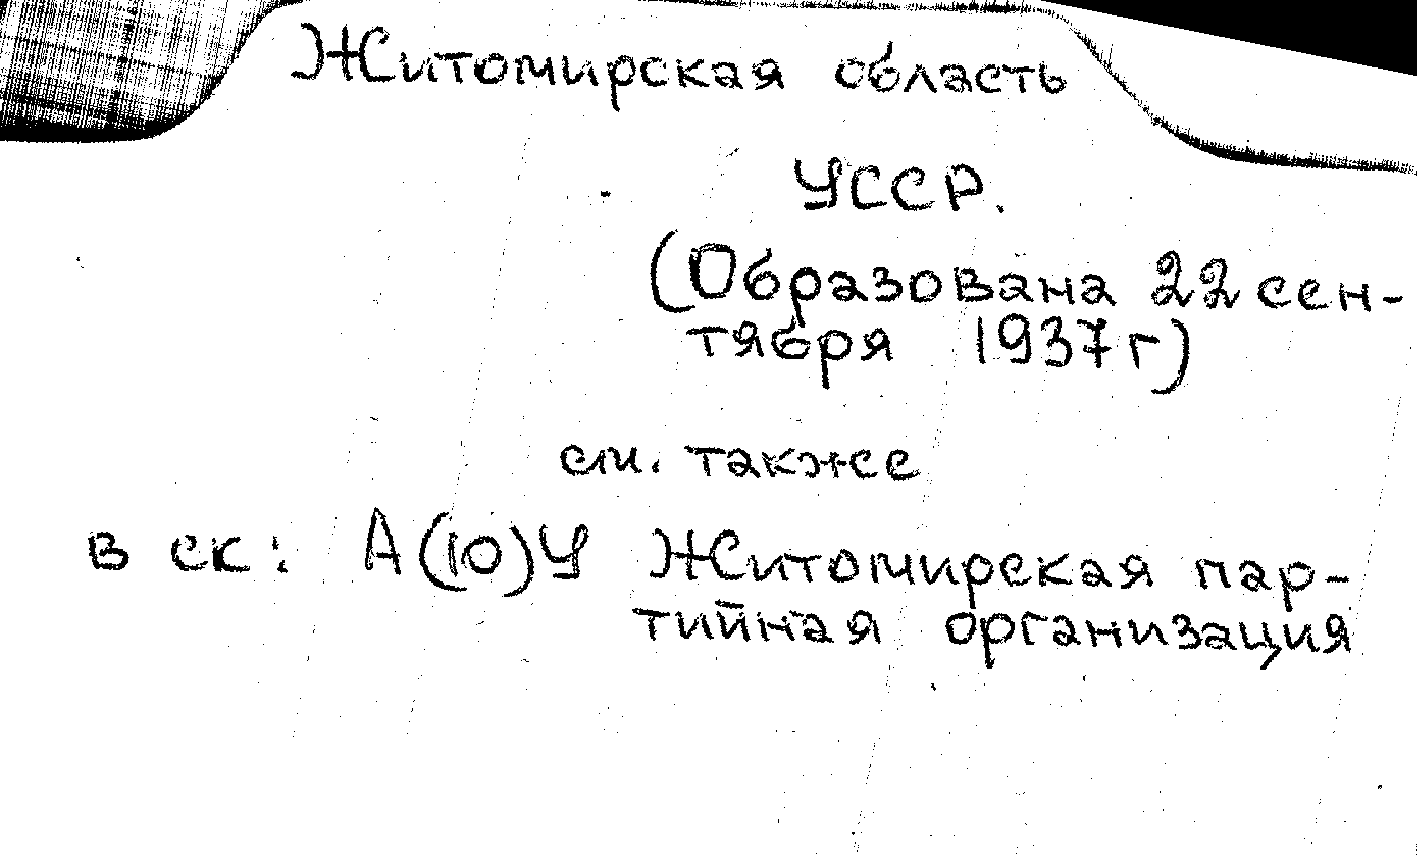 Житомирская область
УССР.
(Образована 22 сен-
тября 1937г)
см. также
в ск: А(10)У Житомирская пар-
тийная организация